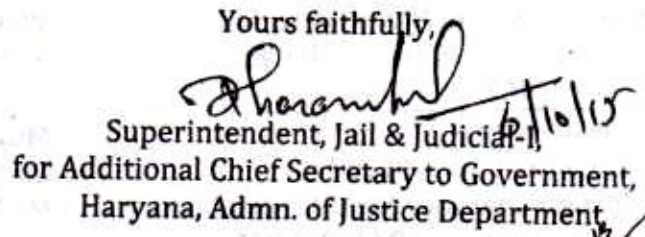 Yours faithfully,
6/10/15
Superintendent, Jail & Judicial-I,
for Additional Chief Secretary to Government,
Haryana, Admn. of Justice Department